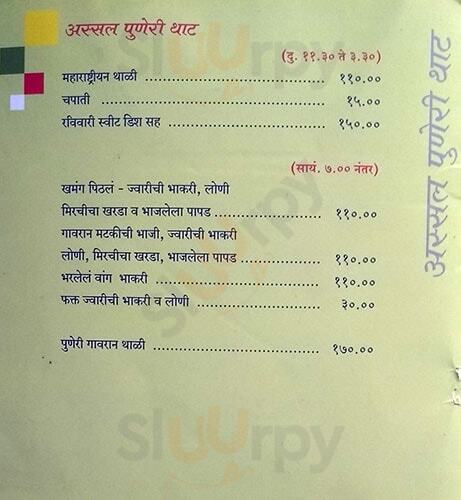 अस्सल पुणेरी थाट
(दु. ११.३० ते ३.३०)
महाराष्ट्रीयन थाळी ........................................ ११०.००
चपाती ........................................ १५.००
रविवारी स्वीट डिश सह ........................................ १५०.००
(सायं. ७.०० नंतर)
खमंग पिठलं - ज्वारीची भाकरी, लोणी
मिरचीचा खरडा व भाजलेला पापड ........................ ११०.००
गावरान मटकीची भाजी, ज्वारीची भाकरी
लोणी, मिरचीचा खरडा, भाजलेला पापड .................... ११०.००
भरलेलं वांग भाकरी ........................................ ११०.००
फक्त ज्वारीची भाकरी व लोणी ............................ ३०.००
पुणेरी गावरान थाळी ........................................ १७०.००
अस्सल पुणेरी थाट
Sluurpy
Sluurpy
Sluurpy